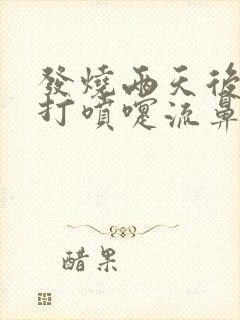 發燒兩天後
打噴嚏流鼻
醋果